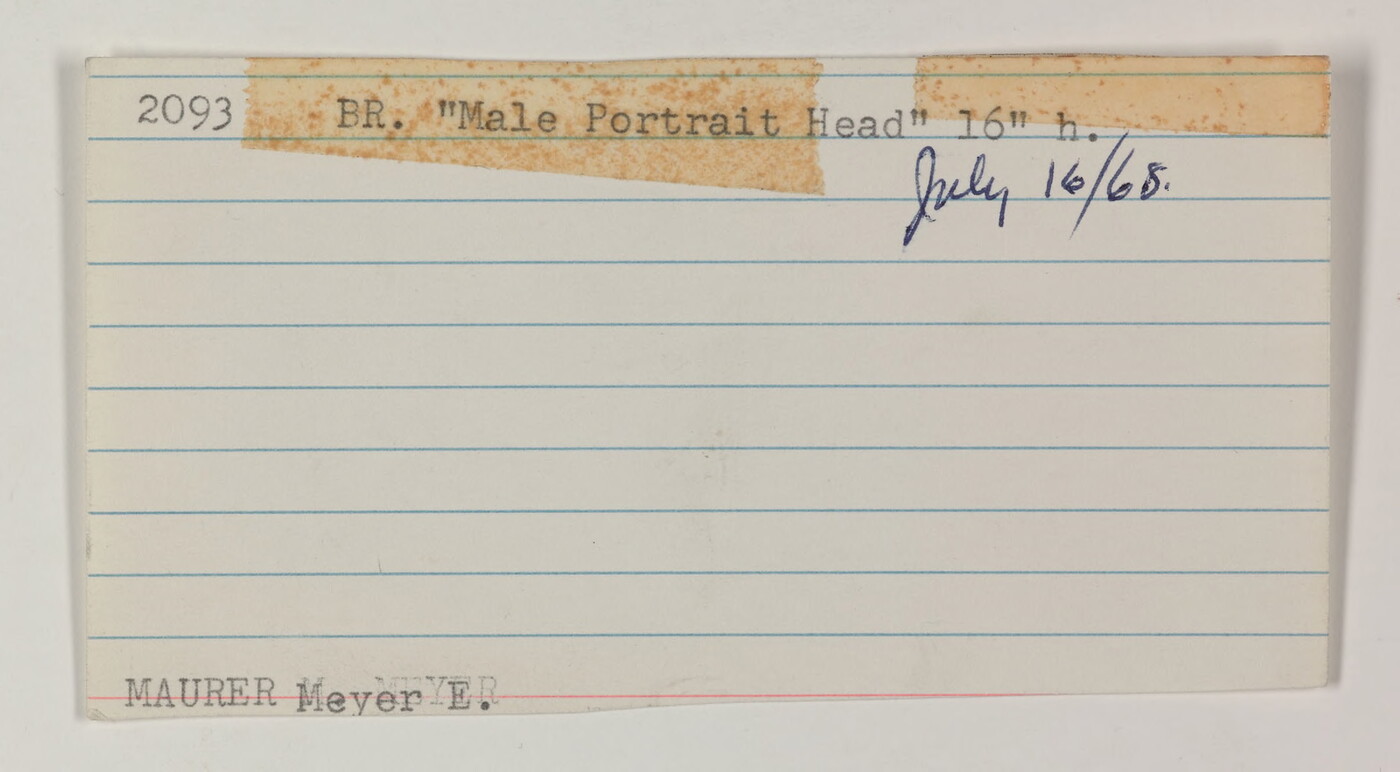 2093 BR. "Male Portrait Head" 16" h.
July 16/68.
MAURER Meyer E.